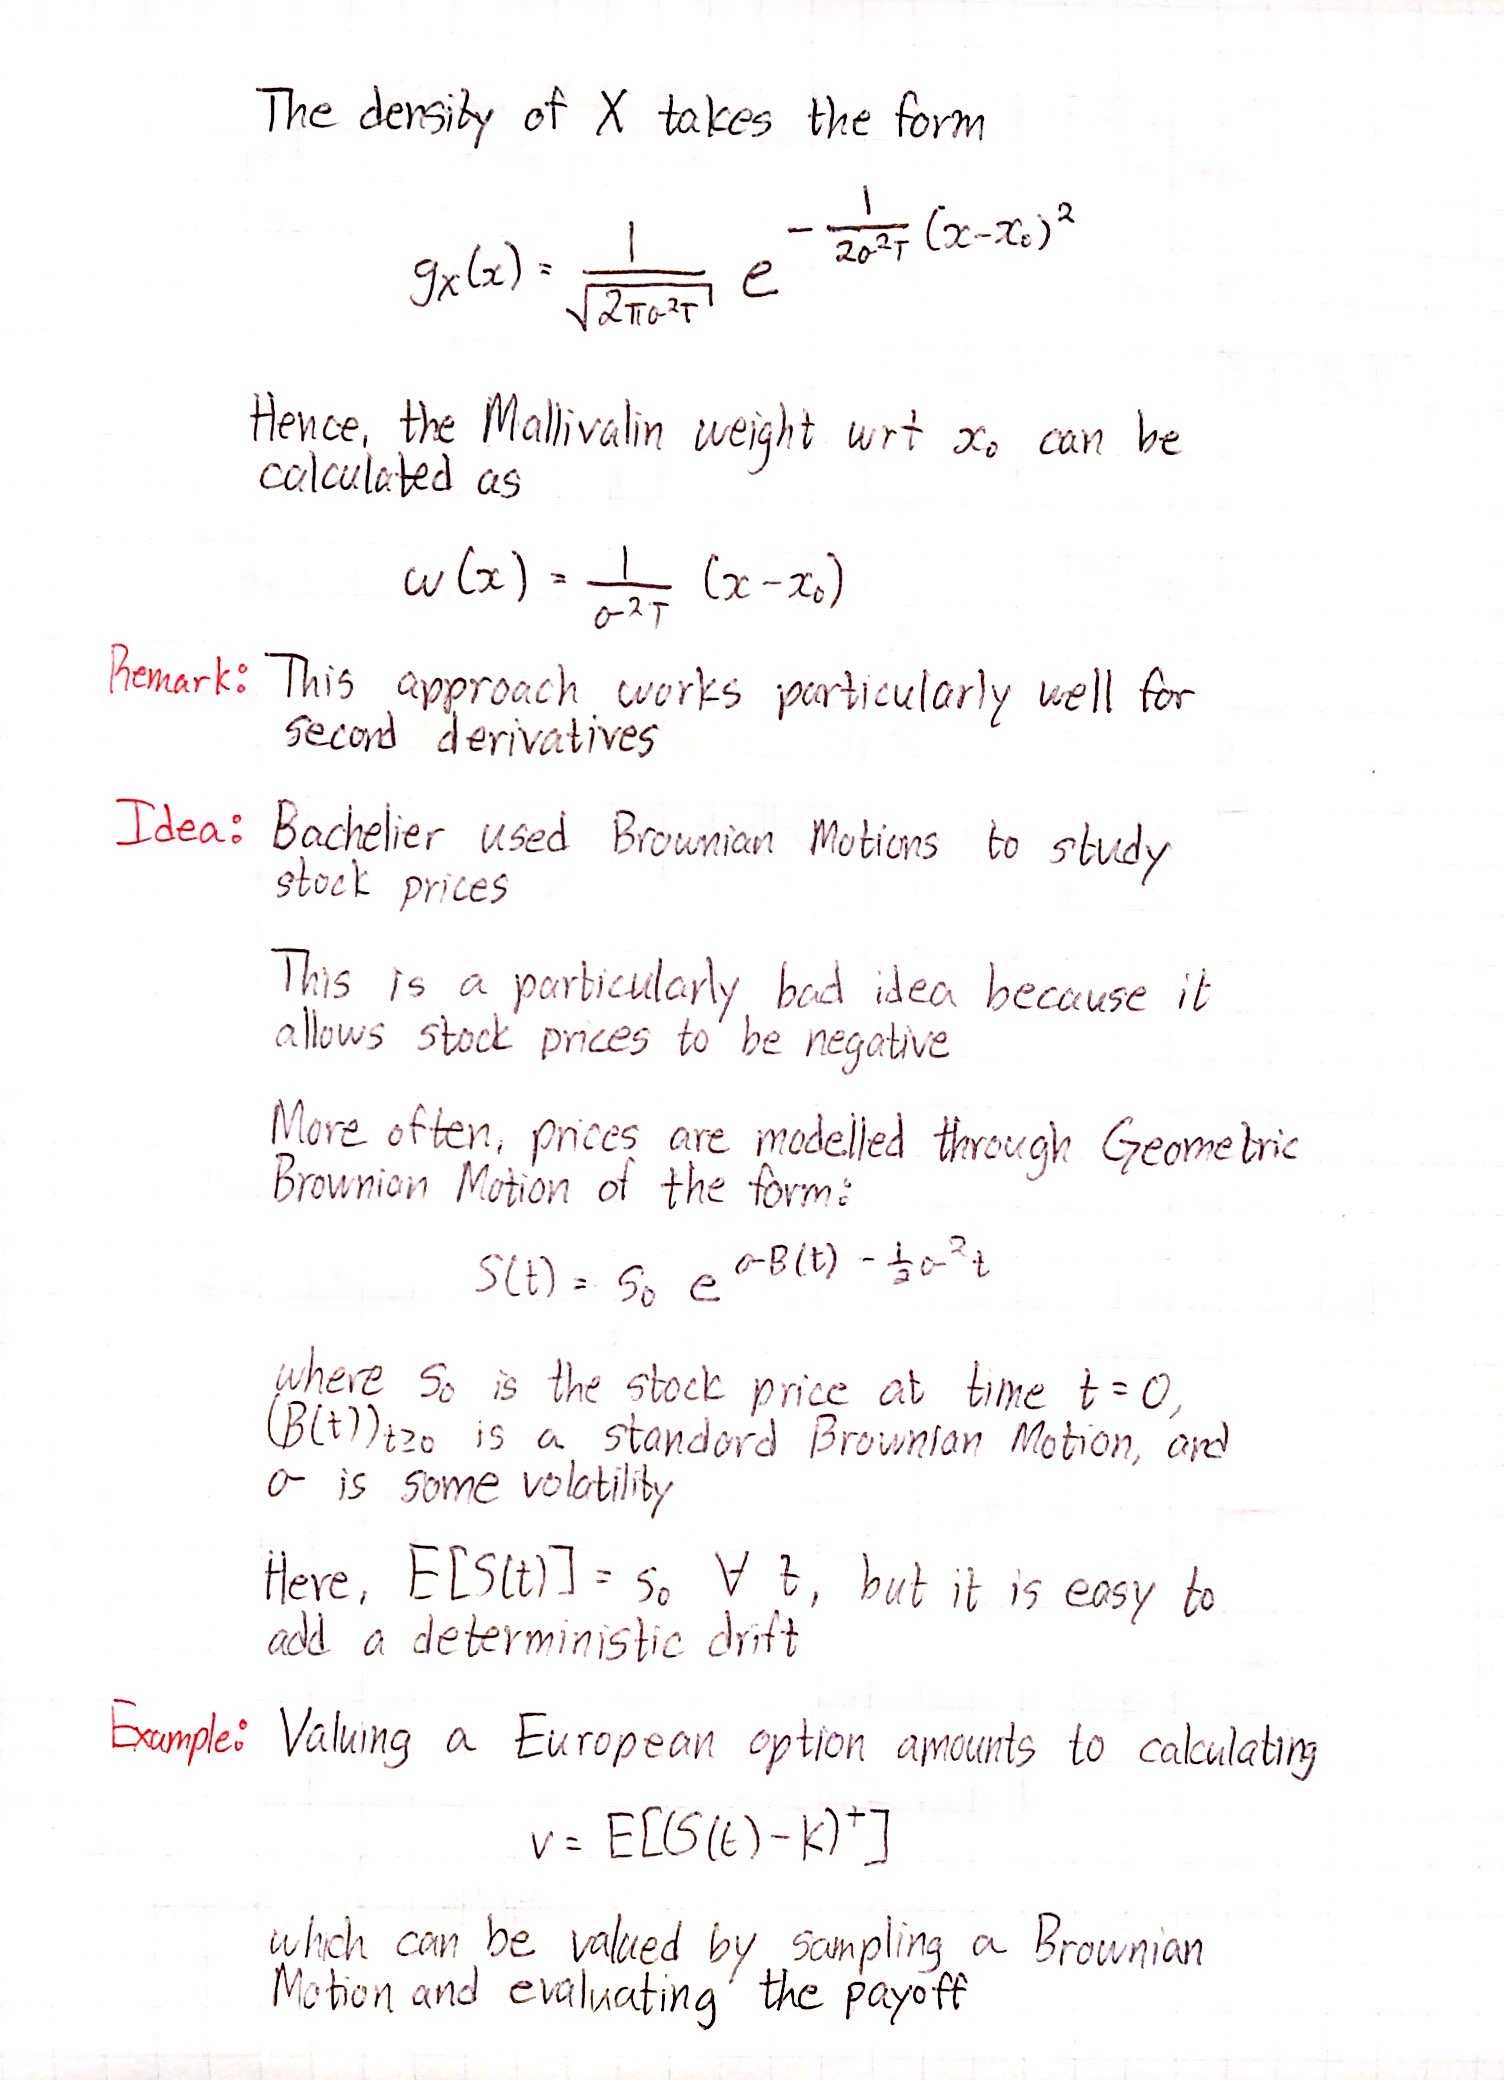 The density of X takes the form
g_X(x) = \frac{1}{\sqrt{2πσ²T}} e^{-\frac{1}{2σ²T}(x-x₀)²}
Hence, the Mallivalin weight wrt x₀ can be
calculated as
w(x) = \frac{1}{σ²T} (x-x₀)
Remark: This approach works particularly well for
second derivatives
Idea: Bachelier used Brownian Motions to study
stock prices
This is a particularly bad idea because it
allows stock prices to be negative
More often, prices are modelled through Geometric
Brownian Motion of the form:
S(t) = s₀ e^{σB(t) - \frac{1}{2}σ²t}
where s₀ is the stock price at time t=0,
(B(t))_{t≥0} is a standard Brownian Motion, and
σ is some volatility
Here, E[S(t)] = s₀ ∀ t, but it is easy to
add a deterministic drift
Example: Valuing a European option amounts to calculating
v = E[(S(t)-K)⁺]
which can be valued by sampling a Brownian
Motion and evaluating the payoff